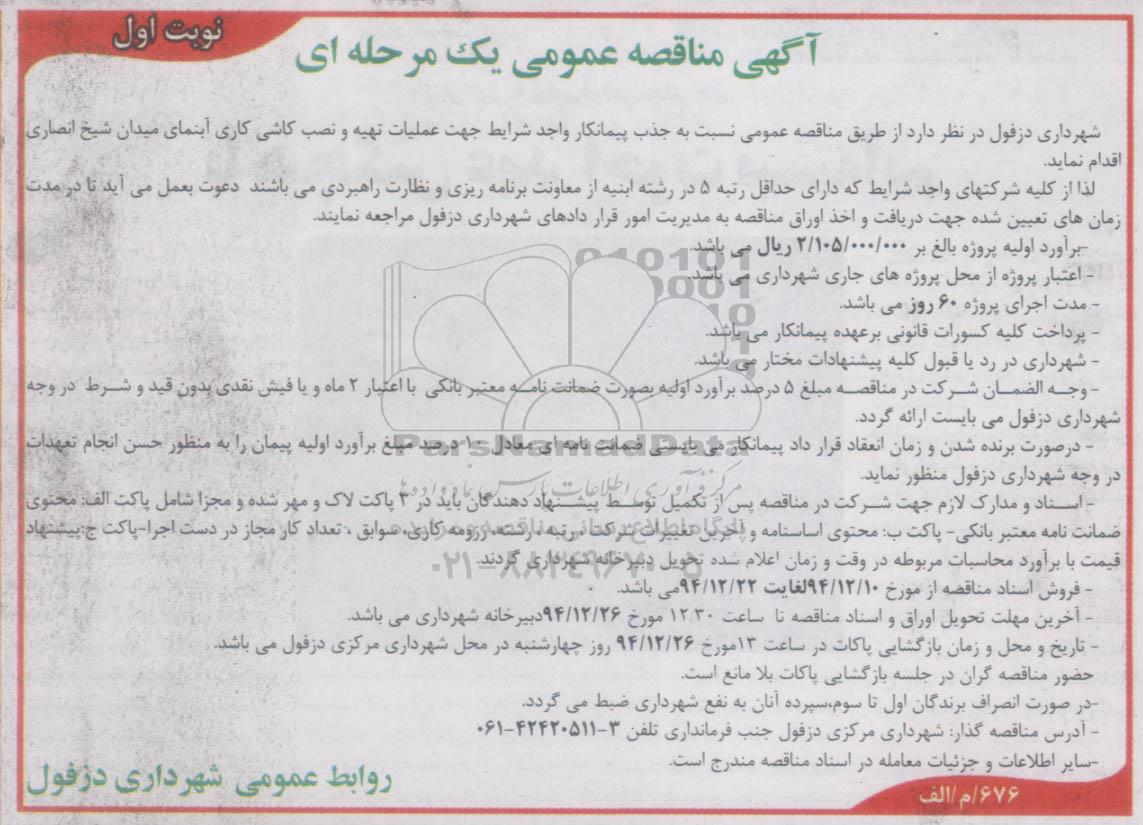 نوبت اول
آگهی مناقصه عمومی یک مرحله ای
شهرداری دزفول در نظر دارد از طریق مناقصه عمومی نسبت به جذب پیمانکار واجد شرایط جهت عملیات تهیه و نصب کاشی کاری آبنمای میدان شیخ انصاری
اقدام نماید.
لذا از کلیه شرکتهای واجد شرایط که دارای حداقل رتبه ۵ در رشته ابنیه از معاونت برنامه ریزی و نظارت راهبردی می باشند دعوت بعمل می آید تا در مدت
زمان های تعیین شده جهت دریافت و اخذ اوراق مناقصه به مدیریت امور قرار دادهای شهرداری دزفول مراجعه نمایند.
-برآورد اولیه پروژه بالغ بر ۲/۱۰۵/۰۰۰/۰۰۰ ریال می باشد.
- اعتبار پروژه از محل پروژه های جاری شهرداری می باشد.
- مدت اجرای پروژه ۶۰ روز می باشد.
- پرداخت کلیه کسورات قانونی برعهده پیمانکار می باشد.
- شهرداری در رد یا قبول کلیه پیشنهادات مختار می باشد.
- وجه الضمان شرکت در مناقصه مبلغ ۵ درصد برآورد اولیه بصورت ضمانت نامه معتبر بانکی با اعتبار ۲ ماه و یا فیش نقدی بدون قید و شرط در وجه
شهرداری دزفول می بایست ارائه گردد.
- درصورت برنده شدن و زمان انعقاد قرار داد پیمانکار می بایستی ضمانت نامه ای معادل ۱۰ درصد مبلغ برآورد اولیه پیمان را به منظور حسن انجام تعهدات
در وجه شهرداری دزفول منظور نماید.
- اسناد و مدارک لازم جهت شرکت در مناقصه پس از تکمیل توسط پیشنهاد دهندگان باید در ۳ پاکت لاک و مهر شده و مجزا شامل پاکت الف: محتوی
ضمانت نامه معتبر بانکی- پاکت ب: محتوی اساسنامه و آخرین تغییرات شرکت، رتبه ، رشته، رزومه کاری، سوابق ، تعداد کار مجاز در دست اجرا-پاکت ج:پیشنهاد
قیمت با برآورد محاسبات مربوطه در وقت و زمان اعلام شده تحویل دبیرخانه شهرداری گردند.
- فروش اسناد مناقصه از مورخ ۹۴/۱۲/۱۰لغایت ۹۴/۱۲/۲۲می باشد.
- آخرین مهلت تحویل اوراق و اسناد مناقصه تا ساعت ۱۲:۳۰ مورخ ۹۴/۱۲/۲۶دبیرخانه شهرداری می باشد.
- تاریخ و محل و زمان بازگشایی پاکات در ساعت ۱۳مورخ ۹۴/۱۲/۲۶ روز چهارشنبه در محل شهرداری مرکزی دزفول می باشد.
حضور مناقصه گران در جلسه بازگشایی پاکات بلا مانع است.
-در صورت انصراف برندگان اول تا سوم،سپرده آنان به نفع شهرداری ضبط می گردد.
- آدرس مناقصه گذار: شهرداری مرکزی دزفول جنب فرمانداری تلفن ۳-۴۲۴۲۰۵۱۱-۰۶۱
-سایر اطلاعات و جزئیات معامله در اسناد مناقصه مندرج است.
روابط عمومی شهرداری دزفول
۶۷۶/م/الف
ParsNamadData
مرکز فرآوری اطلاعات پارس نماد داده ها
۰۲۱-۸۸۳۴۹۶۷۰-۵